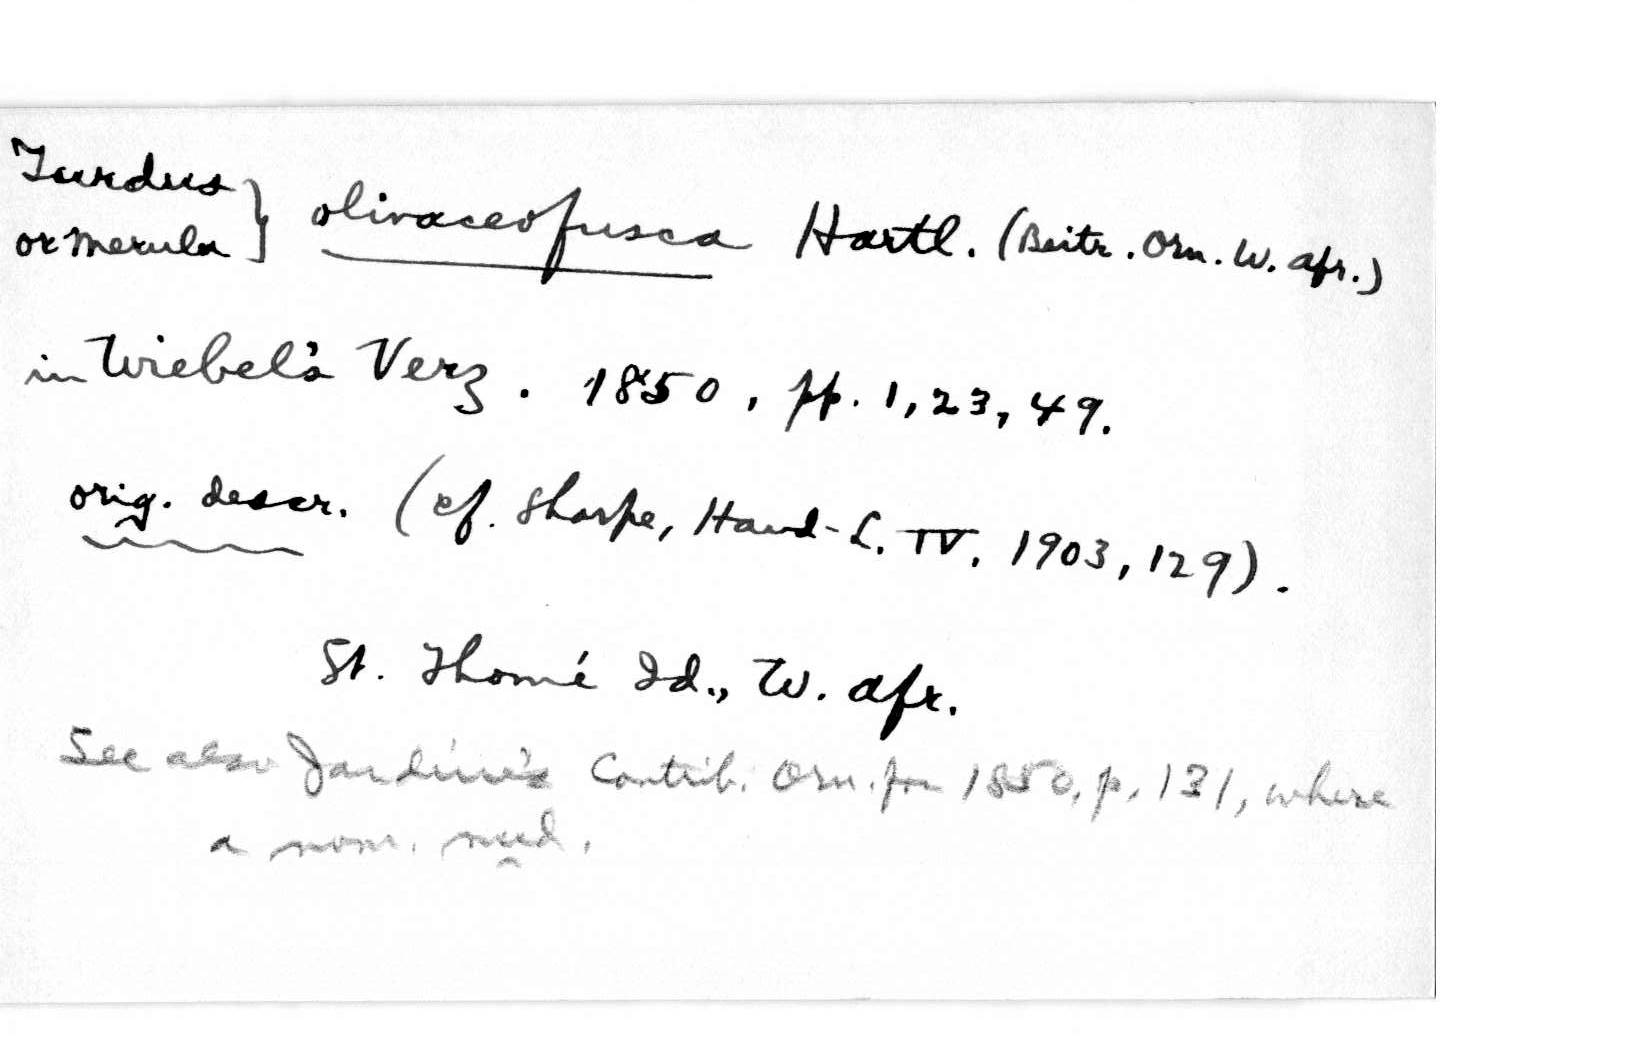 Turdus
or Merula } olivaceofusca Hartl. (Beitr. Orn. W. Afr.)
in Wiebel's Verz. 1850, pp. 1, 23, 49.
orig. descr. (cf. Sharpe, Hand-L. IV. 1903, 129).
St. Thomé Id., W. Afr.
See also Jardine's Contrib. Orn. for 1850, p. 131, where
a nom. nud.